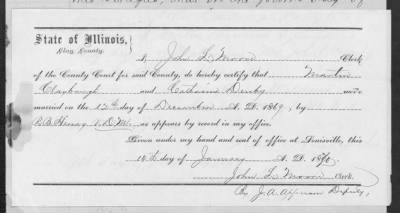 State of Illinois,
Clay County.
I John L. Moore Clerk
of the County Court for said County, do hereby certify that Martin
Claybaugh and Catharine Derby were
married on the 12th day of December A. D. 1869, by
P. B. Henry V.D.M. as appears by record in my office.
Given under my hand and seal of office at Louisville, this
14th day of January A. D. 18
John L. Moore Clerk.
By J. A. Apperson Deputy